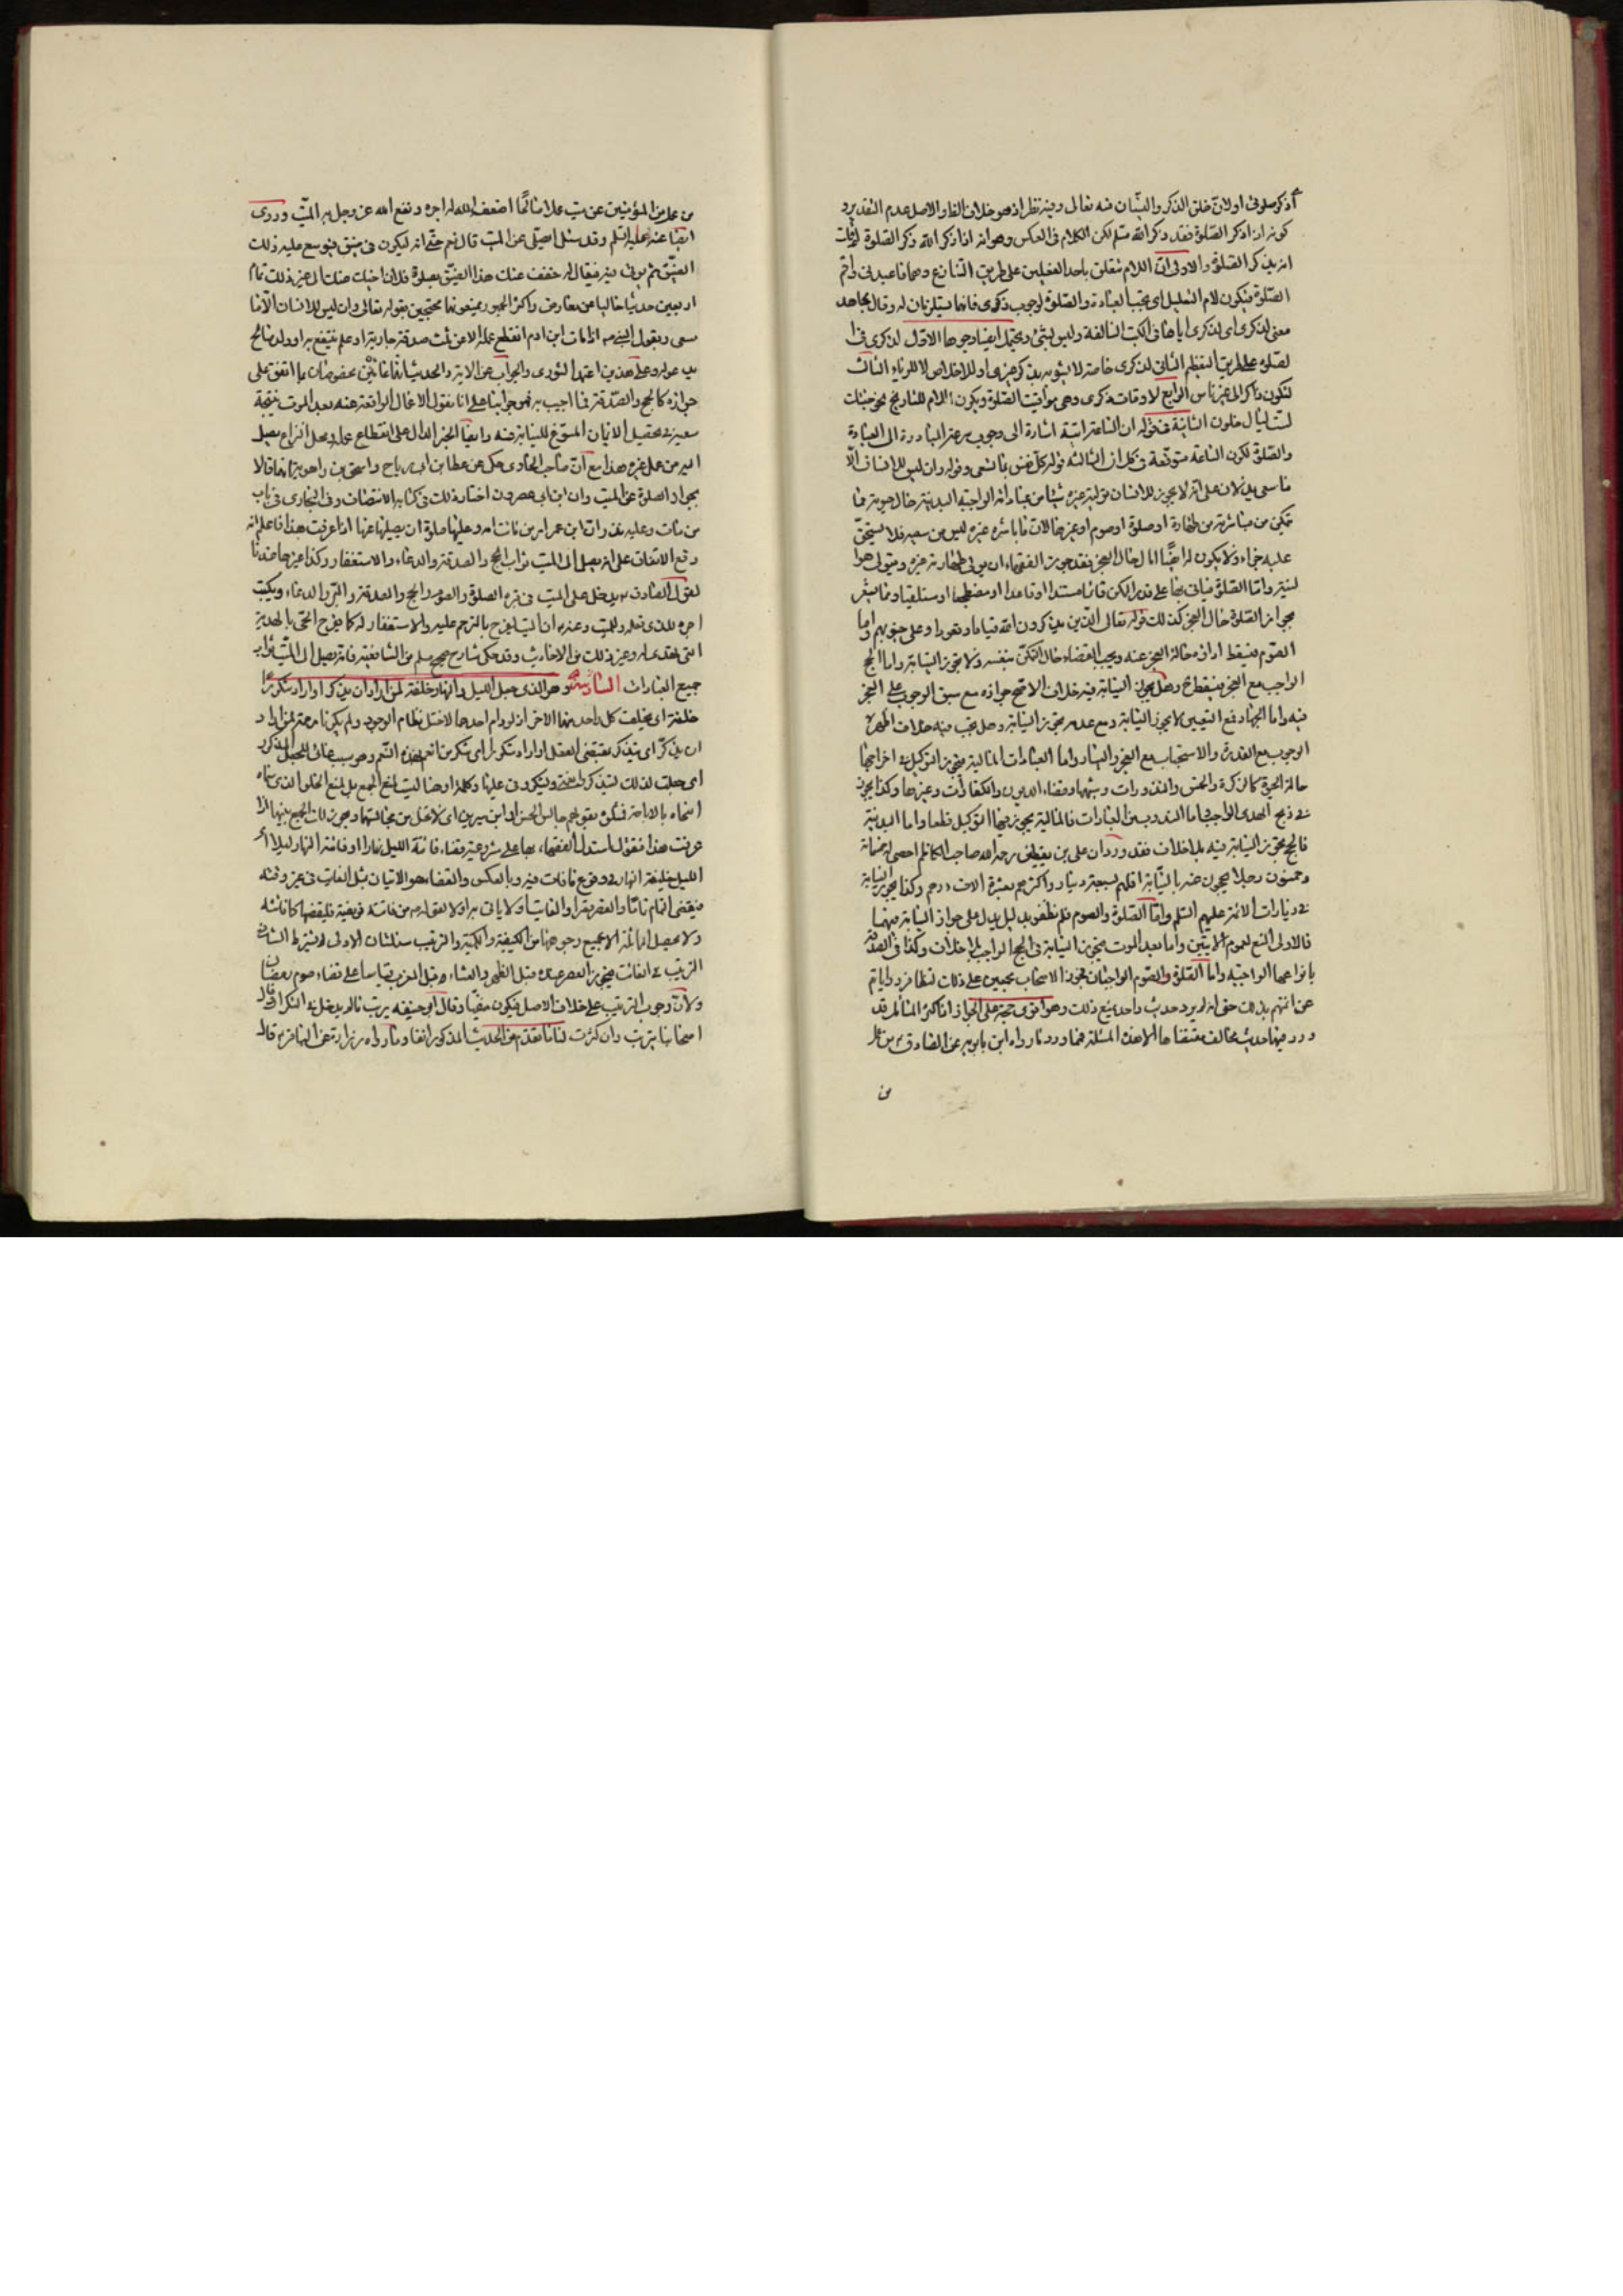 أذكر صلوتى او لان خلق الذكر والنسيان منه تعالى وفيه نظر اذ هو خلاف الظاهر والاصل عدم التقدير و
كونه اذا ذكر الصلوة فقد ذكر الله مسلم لكن الكلام فى العكس وهو انه اذا ذكر الله ذكر الصلوة
انه يذكر الصلوة والاولى ان اللام متعلق باحد الفعلين على طريق التنازع وهما فاعبدنى واقم
الصلوة فيكون لام التعليل اى يجب العبادة والصلوة لوجوب ذكرى فانهما يستلزمان له وقال مجاهد
معنى لذكرى اى لذكرى اياها فى الكتب السالفة وليس بشئ ويحتمل ايضا وجوها الاول لذكرى فى
لصلوة على طريق التعظيم الثانى لذكرى خاصة لا يشوبه بذكر غيرى او للاخلاص لا للرياء الثالث
لتكون ذاكرا لى غير ناس الرابع لاوقات ذكرى وهى مواقيت الصلوة ويكون اللام للتاريخ نحو جئتك
لست ليال خلون الثانية فى قوله ان الساعة اتية اشارة الى وجوب المبادرة الى العبادة
والصلوة لكون الساعة متوقعة فى كل ان الثالثة قوله كل نفس بما تسعى وقوله وان ليس للانسان الا
ما سعى يدلان على انه لا يجوز للانسان تولية غيره شيئا من عباداته الواجبة البدنية حال حيوته مما
تمكن من مباشرته من طهارة او صلوة او صوم او غيرها لان ما باشره غيره ليس من سعيه فلا يستحق
عليه جزاء ولا يكون له اما حال العجز فقد جوز الفقهاء ان يولى طهارته غيره ويتولى هو
لنيته واما الصلوة فياتى بها على قدر المكن قائما مستندا او قاعدا او مضطجعا او مستلقيا ومما
بجواز الصلوة حال العجز كذلك قوله تعالى الذين يذكرون الله قياما وقعودا وعلى جنوبهم واما
الصوم فيسقط اداؤه حالة العجز عنه ويجب القضاء حال التمكن بنفسه ولا يجوز النيابة واما الحج
الواجب مع العجز فيسقط وهل يجوز النيابة فيه خلاف الاصح جوازه مع سبق الوجوب على العجز
فيه واما الجهاد فمع التعيين لا يجوز النيابة ومع عدمه يجوز النيابة وهل يجب فيه خلاف اظهره
الوجوب مع القدرة والاستحباب مع العجز واليسار واما العبادات المالية يجوز التوكيل فى اخراجها
حالة الحيوة كالزكوة والخمس والنذورات وشبهها وقضاء الديون والكفارات وغيرها وكذا يجوز
فى ذبح الهدى الواجب اما المندوب من العبادات فالمالية يجوز فيها التوكيل قطعا واما البدنية
فالحج يجوز النيابة فيه بلا خلاف فقد ورد ان على بن يقطين رحمه الله صاحب الكاظم احصى له خمسماية
وخمسون رجلا يحجون عنه بالنيابة اقلهم بسبعمائة دينار واكثرهم بعشرة الاف درهم وكذا يجوز النيابة
فى زيارات الائمة عليهم السلم واما الصلوة والصوم فلم نظفر بدليل يدل على جواز النيابة فيهما
فالاولى المنع لعموم الايتين واما بعد الموت يجوز النيابة فى الحج الواجب بلا خلاف وكذا فى الصدقة
بانواعها الواجبة واما الصلوة والصوم الواجبتان فجوز الاصحاب مجمعين على ذلك لتظافر رواياتهم
عن ائمتهم بذلك حتى انه لم يرد حديث واحد بمنع ذلك وهو اقوى حجة على الجواز اذ اكثر المسائل قد
ورد فيها حديث مخالف مقتضاها الا هذه المسئلة فما ورد ما رواه ابن بابويه عن الصادق من عمل
من
من عمل من المؤمنين عن ميت عملا صالحا اضعف الله له اجره ونفع الله عز وجل به الميت وروى
ايضا عنه عليه السلم وقد سئل ايصلى عن الميت قال نعم حتى انه ليكون فى ضيق فيوسع عليه ذلك
الضيق ثم يؤتى فيه فيقال له خفف عنك هذا الضيق بصلوة فلان اخيك عنك الى غير ذلك تمام
اربعين حديثا خاليا من معارض واكثر الجمهور يمنعونها محتجين بقوله تعالى وان ليس للانسان الا ما
سعى وبقول النبى ص اذا مات ابن ادم انقطع عمله الا من ثلث صدقة جارية او علم ينتفع به او ولد صالح
يدعو له وعلى هذين اعتمد النووى والجواب عن الاية والحديث انهما عامين مخصوصان بما اتفق على
جوازه كالحج والصدقة فما اجيب به فهو جوابنا على انا نقول الاعمال الواقعة عنه بعد الموت نتيجة
سعيه فى تحصيل الايمان المسوغ للنيابة عنه وايضا الخبر الدال على انقطاع عمله ومحل النزاع يصل
اليه من عمل غيره هذا مع ان صاحب الحاوى حكى عن عطا بن ابى رباح واسحق بن راهويه انهما قالا
بجواز الصلوة عن الميت وان ابن ابى عصرون اختار ذلك فى كتابه الانتصاف وفى البخارى فى باب
من مات وعليه نذر ان ابن عمر امر من ماتت امه وعليها صلوة ان يصليها عنها اذا عرفت هذا فاعلم انه
وقع الاتفاق على انه يصل الى الميت ثواب الحج والصدقة والدعاء والاستغفار وكذا غيرها عندنا
لقول الصادق يدخل على الميت فى قبره الصلوة والصوم والحج والصدقة والبر والدعاء ويكتب
اجره للذى فعله وللميت وعنه ان الميت ليفرح بالترحم عليه والاستغفار له كما يفرح الحى بالهدية
التى تهدى له وغير ذلك من الاحاديث وقد حكى شارح صحيح مسلم من الشافعية فانه يصل الى الميت ثواب
جميع العبادات السادسة وهو الذى جعل الليل والنهار خلفة لمن اراد ان يذكر او اراد شكورا
خلفة اى يخلف كل واحد منهما الاخر اذ لو دام احدهما لاختل نظام الوجود ولم يكن
ان يذكر اى يتذكر بمقتضى العقل او اراد شكورا اى شكر من انعم بهذه النعم وهو سبب غائى للجعل المذكور
اى جعلت لذلك ليتذكروا نعمتى ويشكرونى عليها وكلمة او هنا ليست لمنع الجمع بل لمنع الخلو الذى
النحاة بالاباحة فسكن بقولهم جالس الحسن او ابن سيرين اى لا تخل من مجالستهما ويجوز لك الجمع بينهما اذا
عرفت هذا فنقول استدل الفقهاء بها على شرعية قضاء فائتة الليل نهارا او فائتة النهار ليلا
الليل خليفة النهار فى وقوع ما فات فيه وبالعكس والقضاء هو الاتيان بمثل الفائت فى غير وقته
فيقضى التمام تماما والقصر قصرا
ولا تحصل المماثلة الا بجميع وجوهها من الكيفية والكمية والترتيب مسئلتان الاولى لا يشترط
الترتيب فى الفائت فيجوز العصر قبل الظهر والعشاء قبل المغرب قياسا على قضاء صوم رمضان
ولان وجوب الترتيب على خلاف الاصل فيكون منفيا وقال ابو حنيفه يرتب ما لم يدخل فى التكرار وقال
اصحابنا يترتب وان كثرت لنا ما تقدم من الحديث المذكور انفا وما رواه زرارة عن الباقر ع قال